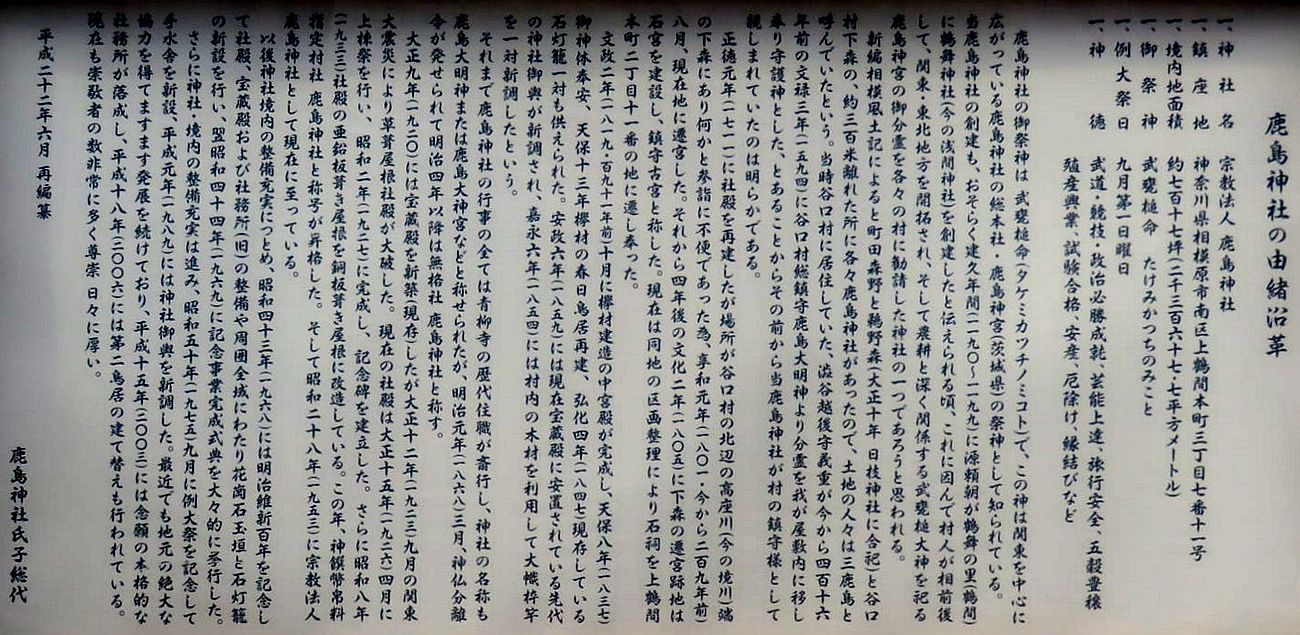 鹿島神社の由緒沿革
一、神社名 宗教法人 鹿島神社
一、鎮座地 神奈川県相模原市南区上鶴間本町三丁目七番十一号
一、境内地面積 約七百十七坪(二千三百六十七・七平方メートル)
一、御祭神 武甕槌命 たけみかつちのみこと
一、例大祭日 九月第一日曜日
一、神徳 武道・競技・政治必勝成就、芸能上達、旅行安全、五穀豊穣
殖産興業、試験合格、安産、厄除け、縁結びなど
鹿島神社の御祭神は 武甕槌命(タケミカツチノミコト)で、この神は関東を中心に
広がっている鹿島神社の総本社・鹿島神宮(茨城県)の祭神として知られている。
当鹿島神社の創建も、おそらく建久年間(一一九〇〜一一九九)に源頼朝が鶴舞の里(鶴間)
に鶴舞神社(今の浅間神社)を創建したと伝えられる頃、これに因んで村人が相前後
して、関東・東北地方を開拓され、そして農耕と深く関係する武甕槌大神を祀る
鹿島神宮の御分霊を各々の村に勧請した神社の一つであろうと思われる。
新編相模風土記によると町田森野と鵜野森(大正十年 日枝神社に合祀)と谷口
村下森の、約三百米離れた所に各々鹿島神社があったので、土地の人々は三鹿島と
呼んでいたという。当時谷口村に居住していた、澁谷越後守義重が今から四百十六
年前の文禄三年(一五九四)に谷口村総鎮守鹿島大明神より分霊を我が屋敷内に移し
奉り守護神とした、とあることからその前から当鹿島神社が村の鎮守様として
親しまれていたのは明らかである。
正徳元年(一七一一)に社殿を再建したが場所が谷口村の北辺の高座川(今の境川)端
の下森にあり何かと参詣に不便であった為、享和元年(一八〇一・今から二百九年前)
八月、現在地に遷宮した。それから四年後の文化二年(一八〇五)に下森の遷宮跡地は
石宮を建設し、鎮守古宮と称した。現在は同地の区画整理により石祠を上鶴間
本町二丁目十一番の地に遷し奉った。
文政二年(一八一九・百九十一年前)十月に欅材建造の中宮殿が完成し、天保八年(一八三七)
御神体奉安、天保十三年欅材の春日鳥居再建、弘化四年(一八四七)現存している
石灯籠一対も供えられた。安政六年(一八五九)には現在宝蔵殿に安置されている先代
の神社御輿が新調され、嘉永六年(一八五四)には村内の木材を利用して大幟枠竿
を一対新調したという。
それまで鹿島神社の行事の全ては青柳寺の歴代住職が斎行し、神社の名称も
鹿島大明神または鹿島大神宮などと称せられたが、明治元年(一八六八)三月、神仏分離
令が発せられて明治四年以降は無格社 鹿島神社と称す。
大正九年(一九二〇)には宝蔵殿を新築(現存)したが大正十二年(一九二三)九月の関東
大震災により草葺屋根社殿が大破した。現在の社殿は大正十五年(一九二六)四月に
上棟祭を行い、昭和二年(一九二七)に完成し、記念碑を建立した。さらに昭和八年
(一九三三)社殿の亜鉛板葺き屋根を銅板葺き屋根に改造している。この年、神饌幣帛料
指定村社 鹿島神社と称号が昇格した。そして昭和二十八年(一九五三)に宗教法人
鹿島神社として現在に至っている。
以後神社境内の整備充実につとめ、昭和四十三年(一九六八)には明治維新百年を記念し
て社殿、宝蔵殿および社務所(旧)の整備や周囲全域にわたり花崗石玉垣と石灯籠
の新設を行い、翌昭和四十四年(一九六九)に記念事業完成式典を大々的に挙行した。
さらに神社・境内の整備充実は進み、昭和五十年(一九七五)九月に例大祭を記念して
手水舎を新設、平成元年(一九八九)には神社御輿を新調した。最近でも地元の絶大な
協力を得てますます発展を続けており、平成十五年(二〇〇三)には念願の本格的な
社務所が落成し、平成十八年(二〇〇六)には第二鳥居の建て替えも行われている。
現在も崇敬者の数非常に多く尊崇 日々に厚い。
平成二十二年六月 再編纂
鹿島神社氏子総代